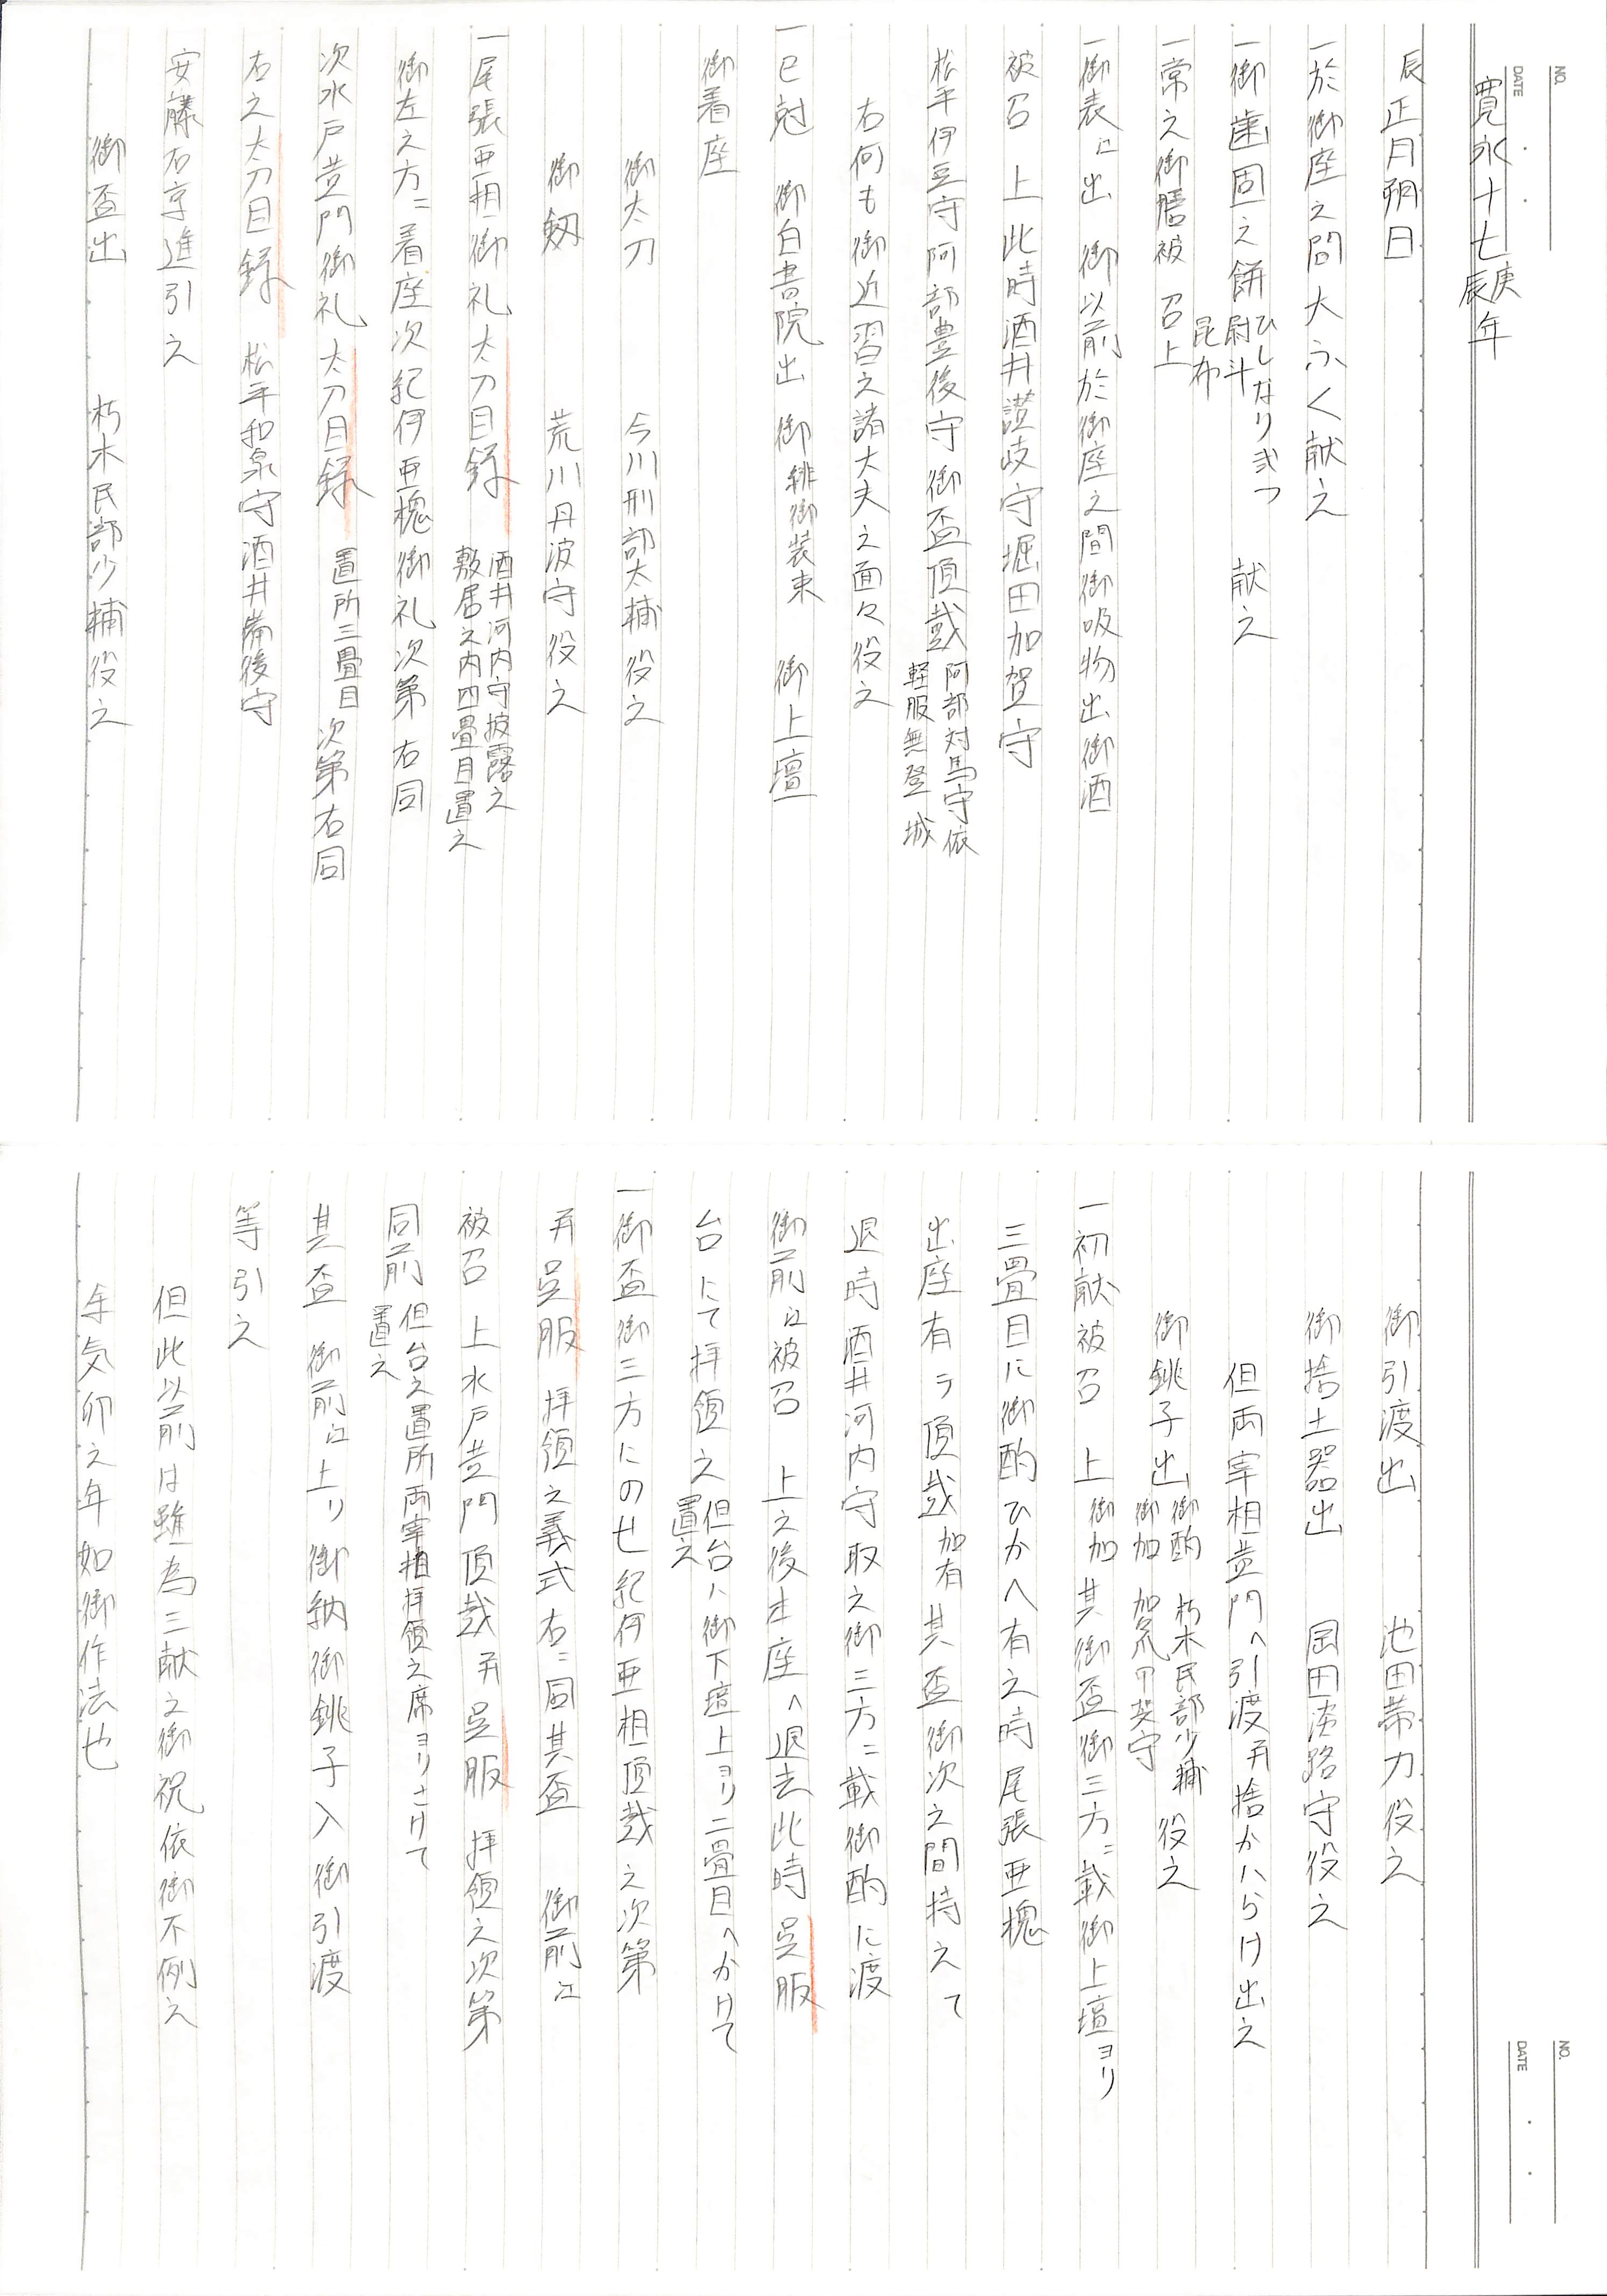 NO.
DATE
寛永十七庚辰年
辰正月朔日
一於御座之間大ふく献之
一御歯固之餅 ひしなり弐つ 尉斗 昆布 献之
一常之御膳被 召上
一御表江出 御以前於御座之間御吸物出御酒
被召 上此時酒井讃岐守堀田加賀守
松平伊豆守阿部豊後守御盃頂戴 阿部対馬守依軽服無登城
右何も御近習之諸大夫之面々役之
一巳尅 御白書院出 御緋御装束 御上壇
御着座
御太刀 今川刑部太輔役之
御剱 荒川丹波守役之
一尾張亜相御礼太刀目録 酒井河内守披露之 敷居之内四畳目置之
御左之方ニ着座次紀伊亜槐御礼次第右同
次水戸黄門御礼太刀目録 置所三畳目 次第右同
右之太刀目録 松平和泉守酒井備後守
安藤右京進引之
御盃出 朽木民部少輔役之
NO.
DATE
御引渡出 池田帯刀役之
御捨土器出 岡田淡路守役之
但両宰相黄門へ引渡并捨かハらけ出之
御銚子出 御酌 朽木民部少輔 御加 加爪甲斐守 役之
一初献被召 上 御加 其御盃御三方ニ載御上壇ヨリ
三畳目に御酌ひかへ有之時尾張亜槐
出座有テ頂戴 加有 其盃御次之間持之て
退時酒井河内守取之御三方ニ載御酌に渡
御前江被召 上之後本座へ退去此時呉服
台にて拝領之 但台ハ御下壇上ヨリ二畳目へかけて置之
一御盃御三方にのせ紀伊亜相頂戴之次第
并呉服拝領之義式右ニ同其盃 御前江
被召 上水戸黄門頂戴并呉服拝領之次第
同前 但台之置所両宰相拝領之席ヨリさけて置之
其盃 御前江上り御納御銚子入御引渡
等引之
但此以前は雖為三献之御祝依御不例之
余気卯之年如御作法也